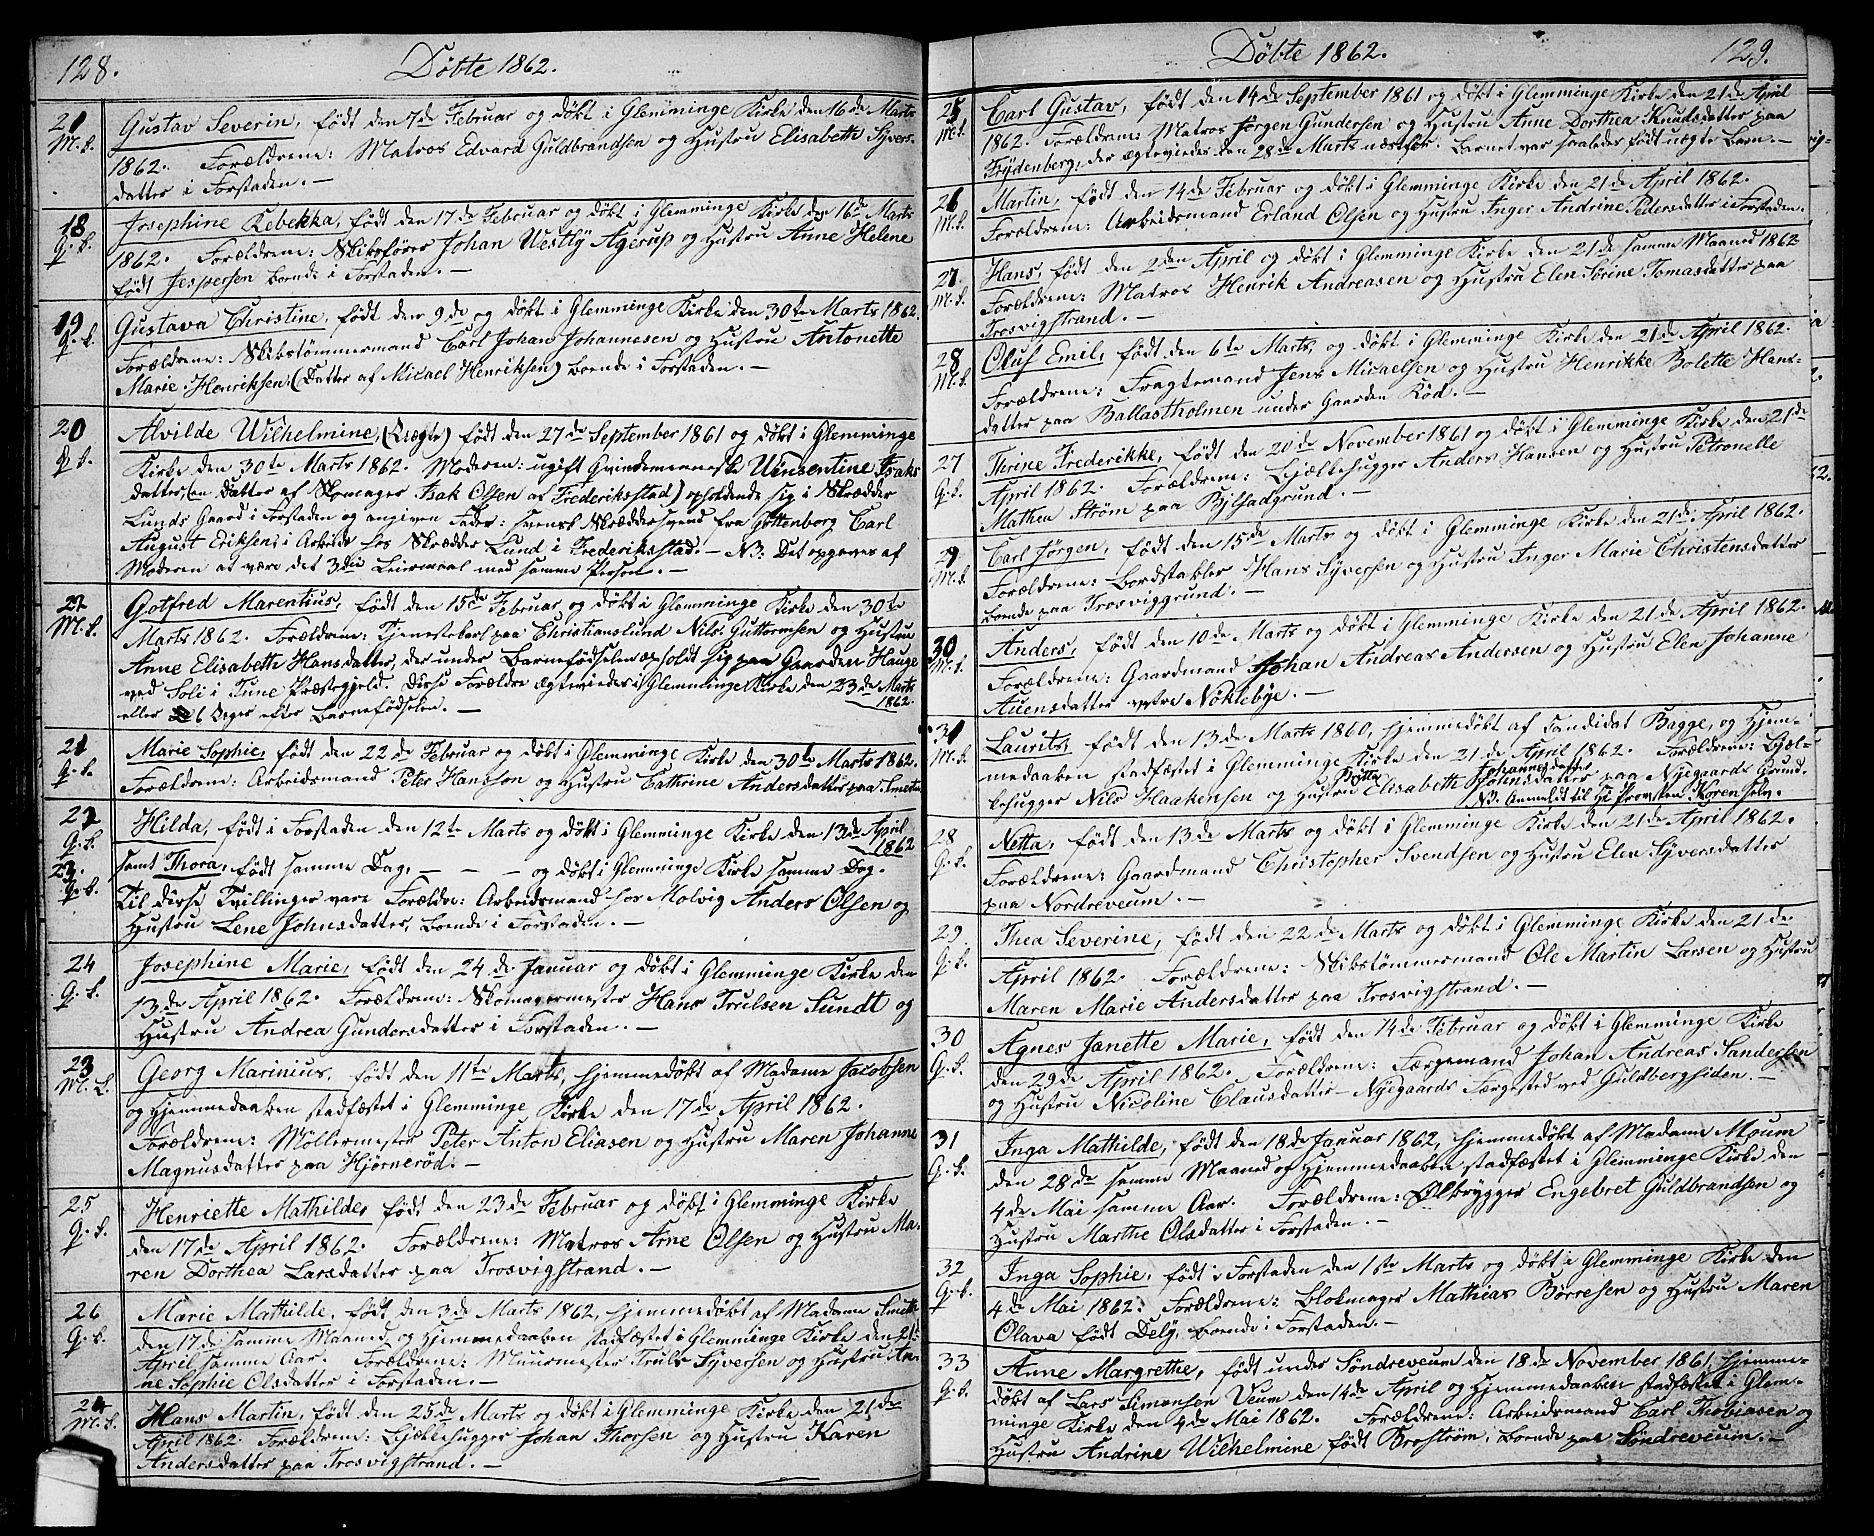 128.
Döbte 1862.
21
M. k.
Gustav Severin, født den 7de Februar og døbt i Glemminge Kirke den 16de Marts
1862. Forældrene: Matros Edvard Guldbrandsen og Hustru Elisabeth Syvers-
datter i Forstaden. —
18
Q. k.
Josephine Rebekka, født den 17de Februar og døbt i Glemminge Kirke den 16de Marts
1862. Forældrene: Skibsfører Johan Westly Agerup og Hustru Anne Helene
født Jespersen boende i Forstaden. —
19
Q. k.
Gustava Christine, født den 9de og døbt i Glemminge Kirke den 30te Marts 1862.
Forældrene: Skibstømmermand Carl Johan Johannesen og Hustru Antonette
Marie Henriksen, (Datter af Micael Henriksen) boende i Forstaden. —
20
Q. k.
Alvilde Wilhelmine, (Uægte) født den 27de September 1861 og døbt i Glemminge
Kirke den 30te Marts 1862. Moderen: ugift Qvindemenneske Vinsentine Isaks-
datter (en Datter af Skomager Isak Olsen af Frederiksstad) opholdende sig i Skrædder
Lunds Gaard i Forstaden og angiven Fader: svensk Skræddersvend fra Gøttenborg Carl
August Eriksen, i Arbeide hos Skrædder Lund i Frederiksstad. — NB: Det opgives af
Moderen at være det 3die Leiermaal med samme Person. —
22
M. k.
Gotfred Marentius, født den 15de Februar og døbt i Glemminge Kirke den 30te
Marts 1862. Forældrene: Tjenestekarl paa Christianslund Nils Guttormsen og Hustru
Anne Elisabeth Hansdatter, der under Barnefødselen opholdt sig paa Gaarden Hauge
ved Soli i Tune Præstegjeld. Disse Forældre ægteviedes i Glemminge Kirke den 23de Marts
1862.
eller 6 Uger efter Barnefødselen. —
21
Q. k.
Marie Sophie, født den 22de Februar og døbt i Glemminge Kirke den 30te Marts 1862.
Forældrene: Arbeidsmand Peter Hansson og Hustru Cathrine Andersdatter paa
22
Q. k.
Hilda, født i Forstaden den 12te Marts og døbt i Glemminge Kirke den 13de April
1862
23.
Q. k.
samt Thora, født samme Dag, — — — og døbt i Glemminge Kirke samme Dag.
Til disse Tvillinger vare Forældre: Arbeidsmand hos Molvig Anders Olsen og
Hustru Lene Johnsdatter, boende i Forstaden. —
24
Q. k.
Josephine Marie, født den 24de Januar og døbt i Glemminge Kirke den
13de April 1862. Forældrene: Skomagermester Hans Trulsen Sundt og
Hustru Andrea Gundersdatter i Forstaden. —
23
M. k.
Georg Marinius, født den 11te Marts, hjemmedøbt af Madame Jacobsen
og Hjemmedaaben stadfæstet i Glemminge Kirke den 17de April 1862.
Forældrene: Møllermester Peter Anton Eliasen og Hustru Maren Johanne
Magnusdatter paa Hjørnerød. —
25
Q. k.
Henriette Mathilde, født den 23de Februar og døbt i Glemminge Kirke
den 17de April 1862. Forældrene: Matros Arne Olsen og Hustru Ma-
ren Dorthea Larsdatter paa Trosvigstrand. —
26
Q. k.
Marie Mathilde, født den 3de Marts 1862, hjemmedøbt af Madame Smith
den 17de samme Maaned og Hjemmedaaben stadfæstet i Glemminge Kirke den 21de
April samme Aar. Forældrene: Muurmester Truls Syversen og Hustru An-
ne Sophie Olsdatter i Forstaden. —
24
M. k.
Hans Martin, født den 25de Marts og døbt i Glemminge Kirke den 21de
April 1862. Forældrene: Bjælkehugger Johan Thorsen og Hustru Karen
Andersdatter paa Trosvigstrand. —
Döbte 1862.
129.
25
M. k.
Carl Gustav, født den 14de September 1861 og døbt i Glemminge Kirke den 21de April
1862. Forældrene: Matros Jørgen Gundersen og Hustru Anne Dorthea Knudsdatter paa
Frydenberg, der ægteviedes den 28de Marts næstfør. Barnet var saaledes født uægte Barn. —
26
M. k.
Martin, født den 14de Februar og døbt i Glemminge Kirke den 21de April 1862.
Forældrene: Arbeidsmand Erland Olsen og Hustru Inger Andrine Pedersdatter i Forstaden.
27.
M. k.
Hans, født den 2den April og døbt i Glemminge Kirke den 21de samme Maaned 1862
Forældrene: Matros Henrik Andreasen og Hustru Elen Sørine Tomasdatter paa
Trosvigstrand. —
28
M. k.
Oluf Emil, født den 6te Marts, og døbt i Glemminge Kirke den 21de April 1862.
Forældrene: Fragtemand Jens Micaelsen og Hustru Henrikke Bolette Hans-
datter paa Ballastholmen under Gaarden Kød. —
27
Q. k.
Thrine Frederikke, født den 20de November 1861 og døbt i Glemminge Kirke den 21de
April 1862. Forældrene: Bjælkehugger Anders Hansen og Hustru Petronelle
Mathea Strøm paa Bylsadgrund. —
29
M. k.
Carl Jørgen, født den 15de Marts og døbt i Glemminge Kirke den 21de April 1862.
Forældrene: Bordstabler Hans Syversen og Hustru Inger Marie Christensdatter
boende paa Trosviggrund. —
30
M. k.
Anders, født den 10de Marts og døbt i Glemminge Kirke den 21de April 1862.
Forældrene: Gaardmand Johan Andreas Andersen og Hustru Elen Johanne
Auensdatter østre Nøklebye. —
31
M. k.
Laurits, født den 13de Marts 1860, hjemmedøbt af Candidat Bagge, og Hjem-
medaaben stadfæstet i Glemminge Kirke den 21de April 1862. Forældrene: Bjæl-
kehugger Nils Haakensen og Hustru Britta Elisabeth Johannesdatter paa Nyegaards Grund.
NB. Anmeldt til Hr Provsten Koren selv.
28
Q. k.
Netta, født den 13de Marts og døbt i Glemminge Kirke den 21de April 1862.
Forældrene: Gaardmand Christopher Svendsen og Hustru Elen Syversdatter
paa Nordreveum. —
29.
Q. k.
Thea Severine, født den 22de Marts og døbt i Glemminge Kirke den 21de
April 1862. Forældrene: Skibstømmermand Ole Martin Larsen og Hustru
Maren Marie Andersdatter paa Trosvigstrand. —
30
Q. k.
Agnes Janette Marie, født den 14de Februar og døbt i Glemminge Kirke
den 29de April 1862. Forældrene: Færgemand Johan Andreas Sandersen
og Hustru Nicoline Clausdatter – Nyegaards Færgested ved Guldbergsiden. —
31
Q. k.
Inga Mathilde, født den 18de Januar 1862, hjemmedøbt af Madame Moum
den 28de samme Maaned og Hjemmedaaben stadfæstet i Glemminge Kirke den
4de Mai samme Aar. Forældrene: Ølbrygger Engebret Guldbrandsen og
Hustru Marthe Olsdatter i Forstaden. —
32
Q. k.
Inga Sophie, født i Forstaden den 1ste Marts og døbt i Glemminge Kirke den
4de Mai 1862. Forældrene: Blokmager Mathias Børresen og Hustru Maren
Olava født Dely, boende i Forstaden. —
33
Q. k.
Anne Margrethe, født under Søndreveum den 18de November 1861, hjemme-
døbt af Lars Simensen Veum den 14de April og Hjemmedaaben stadfæstet i Glem-
minge Kirke den 4de Mai 1862. Forældrene: Arbeidsmand Carl Thobiasen og
Hustru Andrine Wilhelmine født Broström, boende paa Søndreveum. —